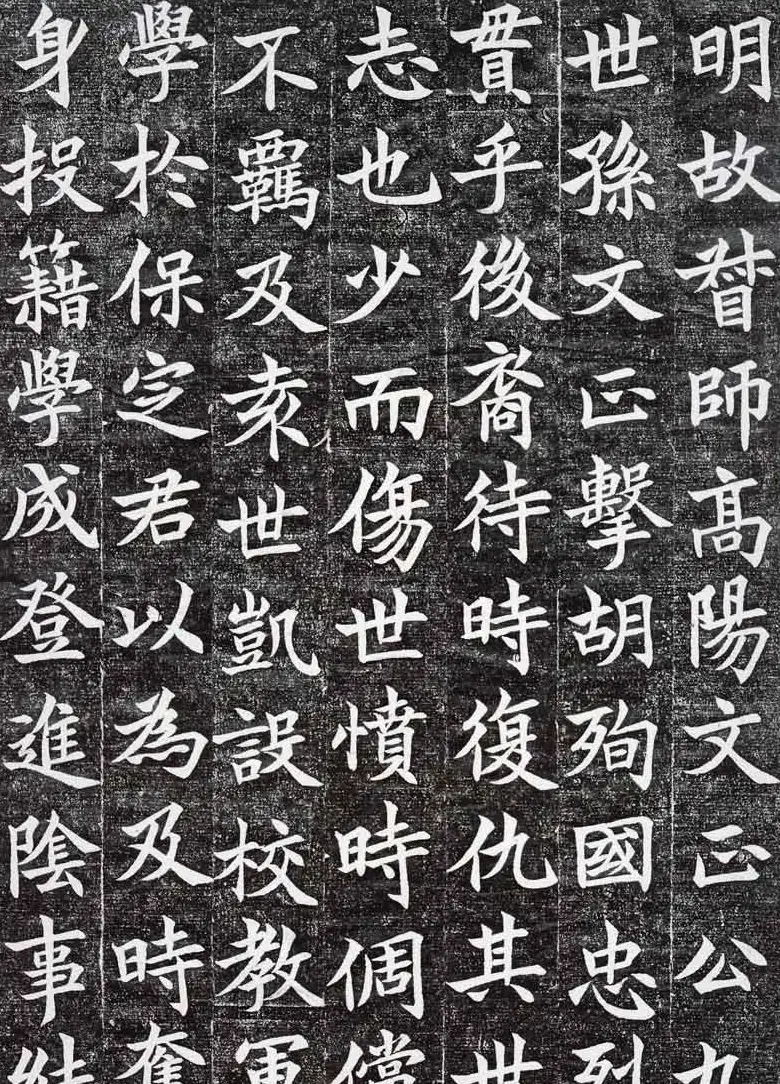 明故督師高陽文正公九
世孫文正擊胡殉國忠烈
貫乎後裔待時復仇其世
志也少而傷世憤時倜儻
不羈及袁世凱設校教軍
學於保定君以為及時奮
身投籍學成登進陰事結